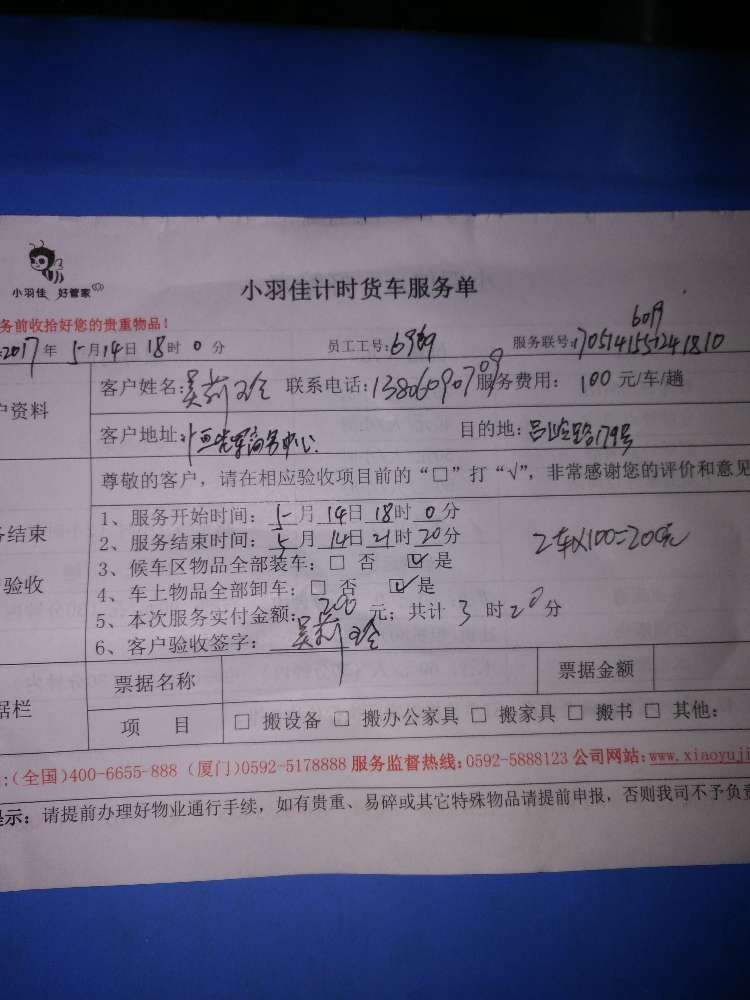 小羽佳 好管家
小羽佳计时货车服务单
务前收拾好您的贵重物品！
2017年 5月14日 18时 0分 员工工号: 服务联号:
6019
户资料 客户姓名: 联系电话:13806090709 服务费用: 100 元/车/趟
客户地址: 商务中心 目的地: 179号
尊敬的客户，请在相应验收项目前的“□”打“√”，非常感谢您的评价和意见
务结束
验收
1、服务开始时间: 5月14日18时0分
2、服务结束时间: 5月14日21时20分
2车X100=200元
3、候车区物品全部装车: □ 否 ☑ 是
4、车上物品全部卸车: □ 否 ☑ 是
5、本次服务实付金额: 200 元; 共计 3 时20分
6、客户验收签字:
据栏 票据名称 票据金额
项 目 □ 搬设备 □ 搬办公家具 □ 搬家具 □ 搬书 □ 其他:
:(全国)400-6655-888 (厦门)0592-5178888 服务监督热线:0592-5888123 公司网站:www.xiaoyuji
提示: 请提前办理好物业通行手续，如有贵重、易碎或其它特殊物品请提前申报，否则我司不予负责